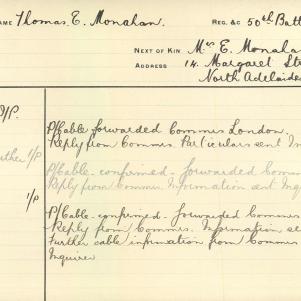 NAME Thomas E. Monahan. REG. &c 50th Batt
NEXT OF KIN Mrs E. Monahan
ADDRESS 14 Margaret Str
North Adelaide
P/Cable forwarded Commrs London.
Reply from Commrs. Particulars sent In
P/Cable. confirmed. forwarded Comm
Reply from Commrs Information sent Inqui
1/P P/Cable. confirmed. Forwarded Commrs
Reply from Commrs. Information se
Further cable information from Commrs
Inquirer